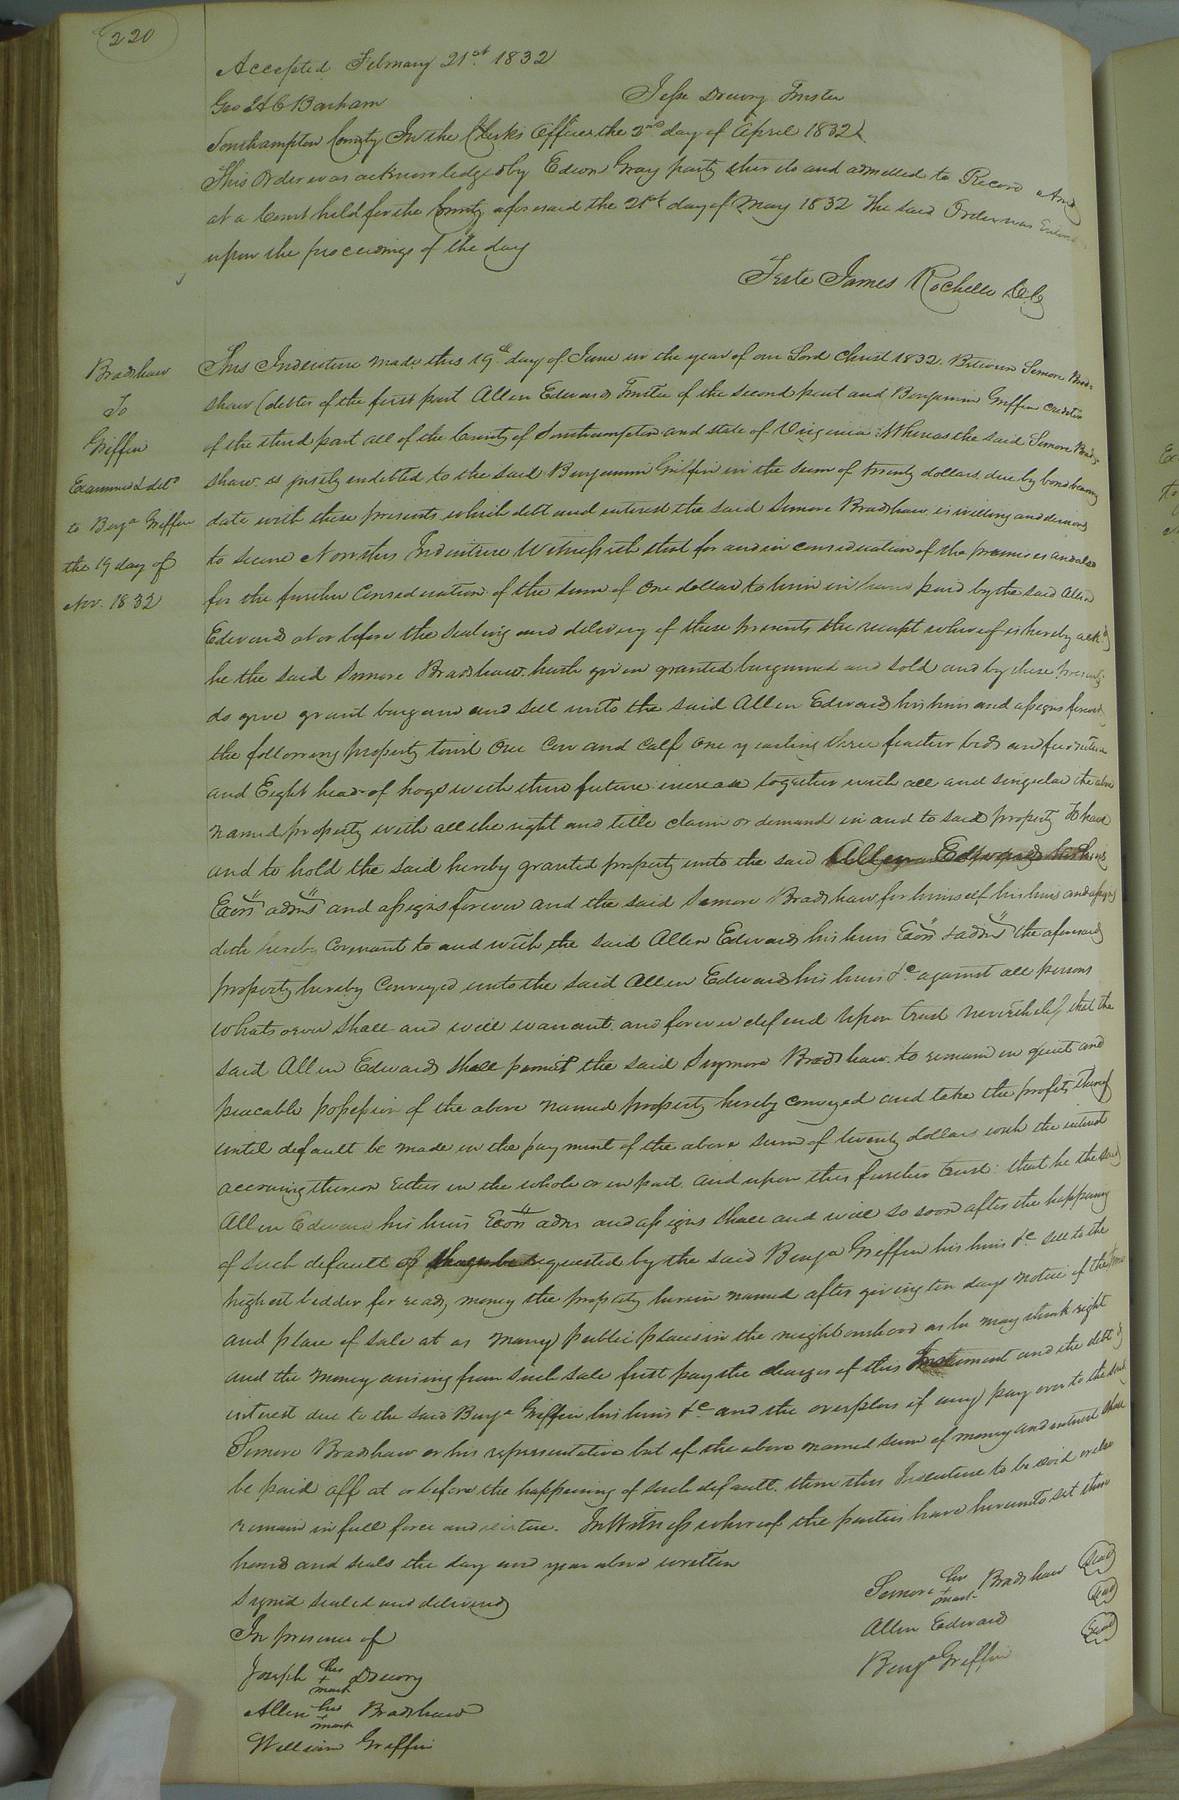 220
Accepted February 21st 1832
Geo H C Barham Jesse Drewry Trustee
Southampton County In the Clerks Office the 3rd day of April 1832
This Order was acknowledged by Edwin Gray party thereto and admitted to Record And
at a Court held for the County aforesaid the 21st day of May 1832 the said Order was Entered
upon the proceedings of the day
Teste James Rochelle C.C.
Bradshaw
To
Griffin
Examined & deld
to Benja Griffin
the 19 day of
Nov. 1832
This Indenture made this 19th day of June in the year of our Lord Christ 1832. Between Semore Brad-
shaw (debtor of the first part Allen Edwards Trustee of the second part and Benjamin Griffin creditor
of the third part all of the County of Southampton and state of Virginia: Whereas the said Semore Brad-
shaw is justly indebted to the said Benjamin Griffin in the sum of twenty dollars due by bond bearing
date with these presents which debt and interest the said Simore Bradshaw is willing and desirous
to secure Now this Indenture Witnesseth that for and in consideration of the premises and also
for the further Consideration of the sum of One dollar to him in hand paid by the said Allen
Edwards at or before the sealing and delivery of these presents the receipt whereof is hereby ackd
he the said Simore Bradshaw hath given granted bargained and sold and by these presents
do give grant bargain and sell unto the said Allen Edwards his heirs and assigns forever
the following property towit One Cow and Calf One yearling three feather beds and furniture
and Eight head of hogs with their future increase together with all and singular the above
named property with all the right and title claim or demand in and to said property To have
and to hold the said hereby granted property unto the said Allen Edwards his heirs
Exors admrs and assigns forever and the said Semore Bradshaw for himself his heirs and assigns
doth hereby Covenant to and with the said Allen Edwards his heirs Exors & admrs the aforesaid
property hereby Conveyed unto the said Allen Edwards his heirs &c against all persons
whatsoever shall and will warrant and forever defend Upon trust nevertheless that the
said Allen Edwards shall permit the said Seymore Bradshaw to remain in quiet and
peacable possession of the above named property hereby conveyed and take the profits thereof
until default be made in the payment of the above sum of twenty dollars with the interest
accruing thereon either in the whole or in part and upon this further trust: that he the said
Allen Edwards his heirs Exors admrs and assigns shall and will so soon after the happening
of such default of requested by the said Benja Griffin his heirs &c sell to the
highest bidder for ready money the property herein named after giving ten days notice of the time
and place of sale at as many public places in the neighbourhood as he may think right
and the money arising from such sale first pay the charges of this Instrument and the debt &
interest due to the said Benja Griffin his heirs &c and the overplus if any) pay over to the said
Semore Bradshaw or his representative but if the above named sum of money and interest shall
be paid off at or before the happening of such default. then this Indenture to be void or else
remain in full force and virtue. In Witness whereof the parties have hereunto set their
hand and seals the day and year above written
Signed sealed and delivered
In presence of
Semore his + mark Bradshaw (Seal)
Allen Edward (Seal)
Benja Griffin (Seal)
Joseph his + mark Drewry
Allen his + mark Bradshaw
William Griffin